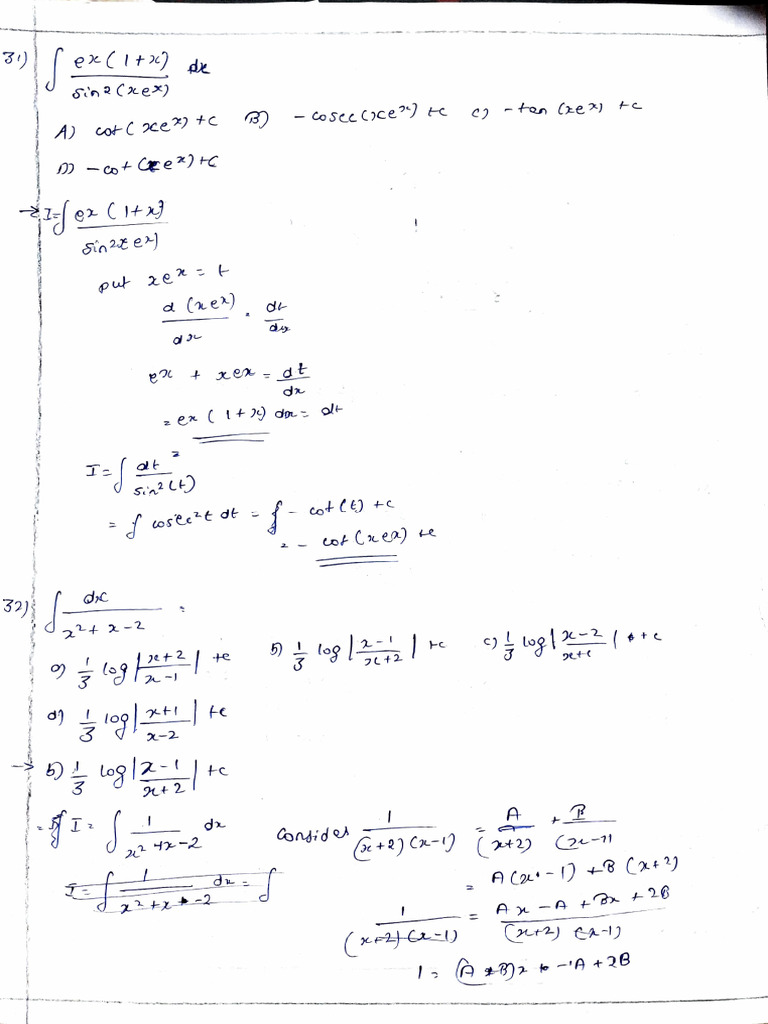 31) ∫ ex(1+x) / sin2(xex) dx
A) cot(xex)+c B) -cosec(xex)+c c) -tan(xex)+c
D) -cot(xex)+c
→ I=∫ ex(1+x) / sin2(xex)
put xex = t
d(xex)/dx = dt/dx
ex + xex = dt/dx
= ex(1+x) dx = dt
I = ∫ dt / sin2(t)
= ∫ cosec2t dt = ∫ -cot(t)+c
= -cot(xex)+c
32) ∫ dx / x2+x-2 =
a) 1/3 log|x+2 / x-1| +c b) 1/3 log|x-1 / x+2| +c c) 1/3 log|x-2 / x+1| +c
d) 1/3 log|x+1 / x-2| +c
→ b) 1/3 log|x-1 / x+2| +c
I = ∫ 1 / x2+x-2 dx consider 1 / (x+2)(x-1) = A / (x+2) + B / (x-1)
I = ∫ 1 / x2+x-2 dx = ∫
= A(x-1)+B(x+2)
1 / (x+2)(x-1) = Ax-A+Bx+2B / (x+2)(x-1)
1 = (A+B)x -A+2B